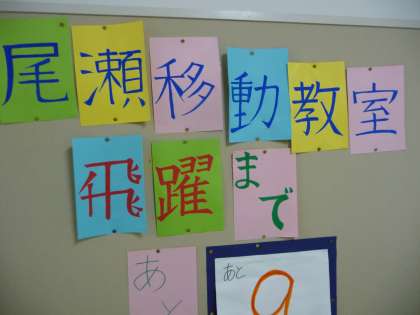 尾瀬移動教室
飛躍まで
あと
あと
9